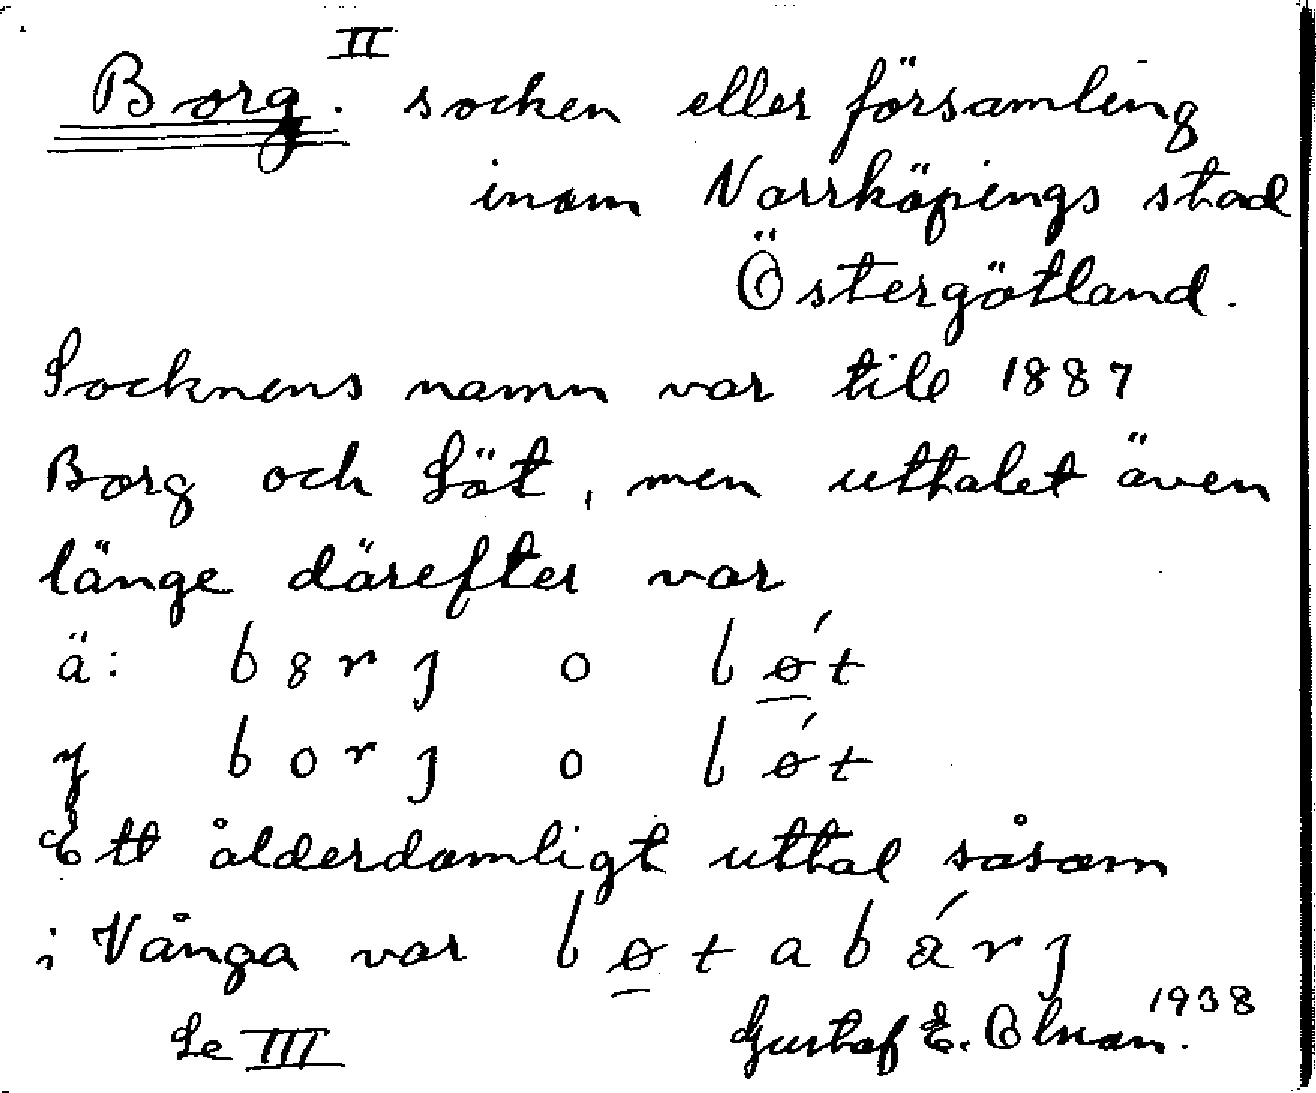 II
Borg. socken eller församling
inom Norrköpings stad
Östergötland.
Socknens namn var till 1887
Borg och Löt, men uttalet även
länge därefter var
ä: b8rȷ o lǿt
y borȷ o lǿt
Ett ålderdomligt uttal såsom
i Vånga var løtabárȷ
Se III Gustaf E. Olsson. 1938